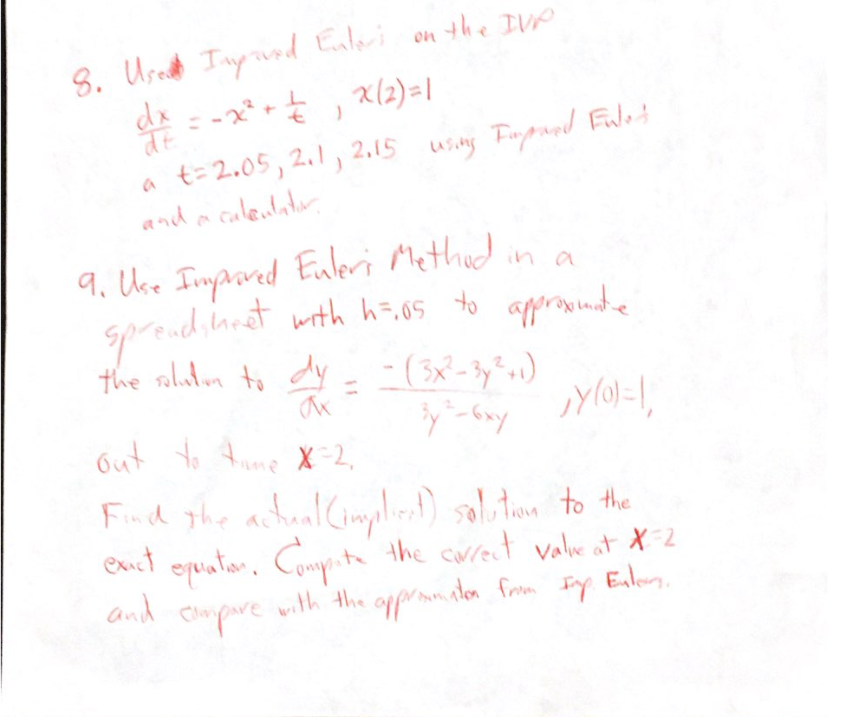 8. Used Improved Euler's on the IVP
dx/dt = -x² + 1/t , x(2)=1
a t=2.05, 2.1, 2.15 using Improved Euler's
and a calculator.
9. Use Improved Euler's Method in a
spreadsheet with h=.05 to approximate
the solution to dy/dx = -(3x²-3y²+1)/(3y²-6xy) , y(0)=1,
out to time x=2.
Find the actual (implicit) solution to the
exact equation. Compute the correct value at x=2
and compare with the approximation from Imp Eulers.